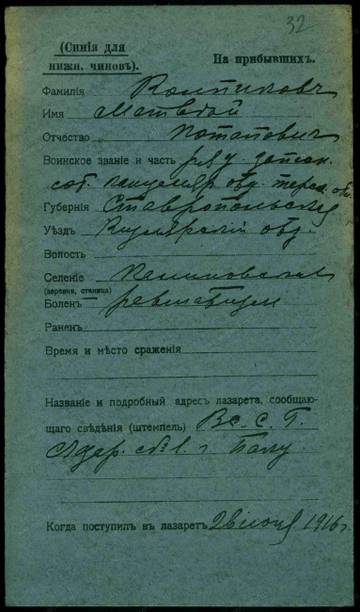 32
(Синія для
нижн. чиновъ).
На прибывшихъ.
Фамилія
Имя Матвѣй
Отчество Потаповичъ
Воинское званіе и часть ряд запасн
сот. обл.
Губернія Ставропольская
Уѣздъ Кизлярскій отд.
Волость
Селеніе
(деревня, станица)
Боленъ ревматизм
Раненъ
Время и мѣсто сраженія
Названіе и подробный адресъ лазарета, сообщаю-
щаго свѣдѣнія (штемпель) Вс. С. Г.
г Баку
Когда поступилъ въ лазаретъ 28 1916 г